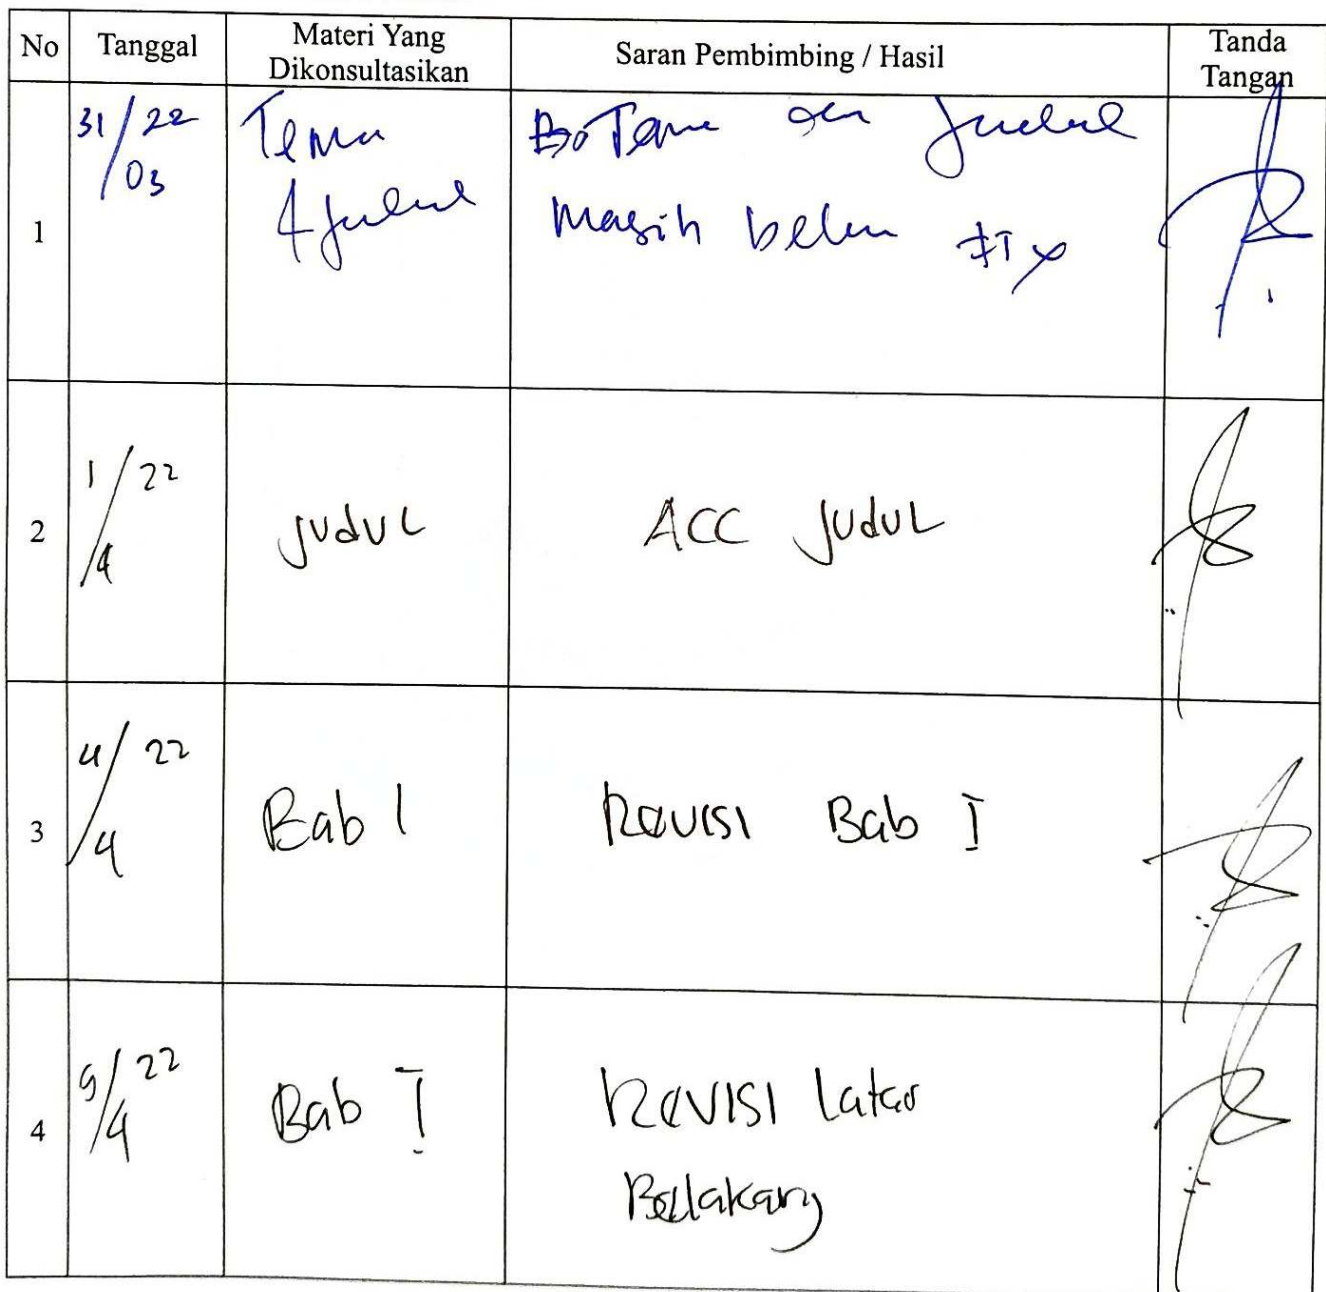 No Tanggal Materi Yang Dikonsultasikan Saran Pembimbing / Hasil Tanda Tangan
1
31/22
03
Tema
& Judul
Tema dan Judul
Masih belum Fix
2
1/22
4
Judul
ACC Judul
3
4/22
4
Bab I
Revisi Bab I
4
9/22
4
Bab I
Revisi Latar
Belakang